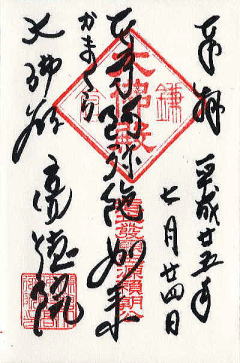 奉拝 平成廿五年
七月廿四日
本尊阿弥陀如来
かまくら
大佛殿 高徳院
鎌
大佛殿